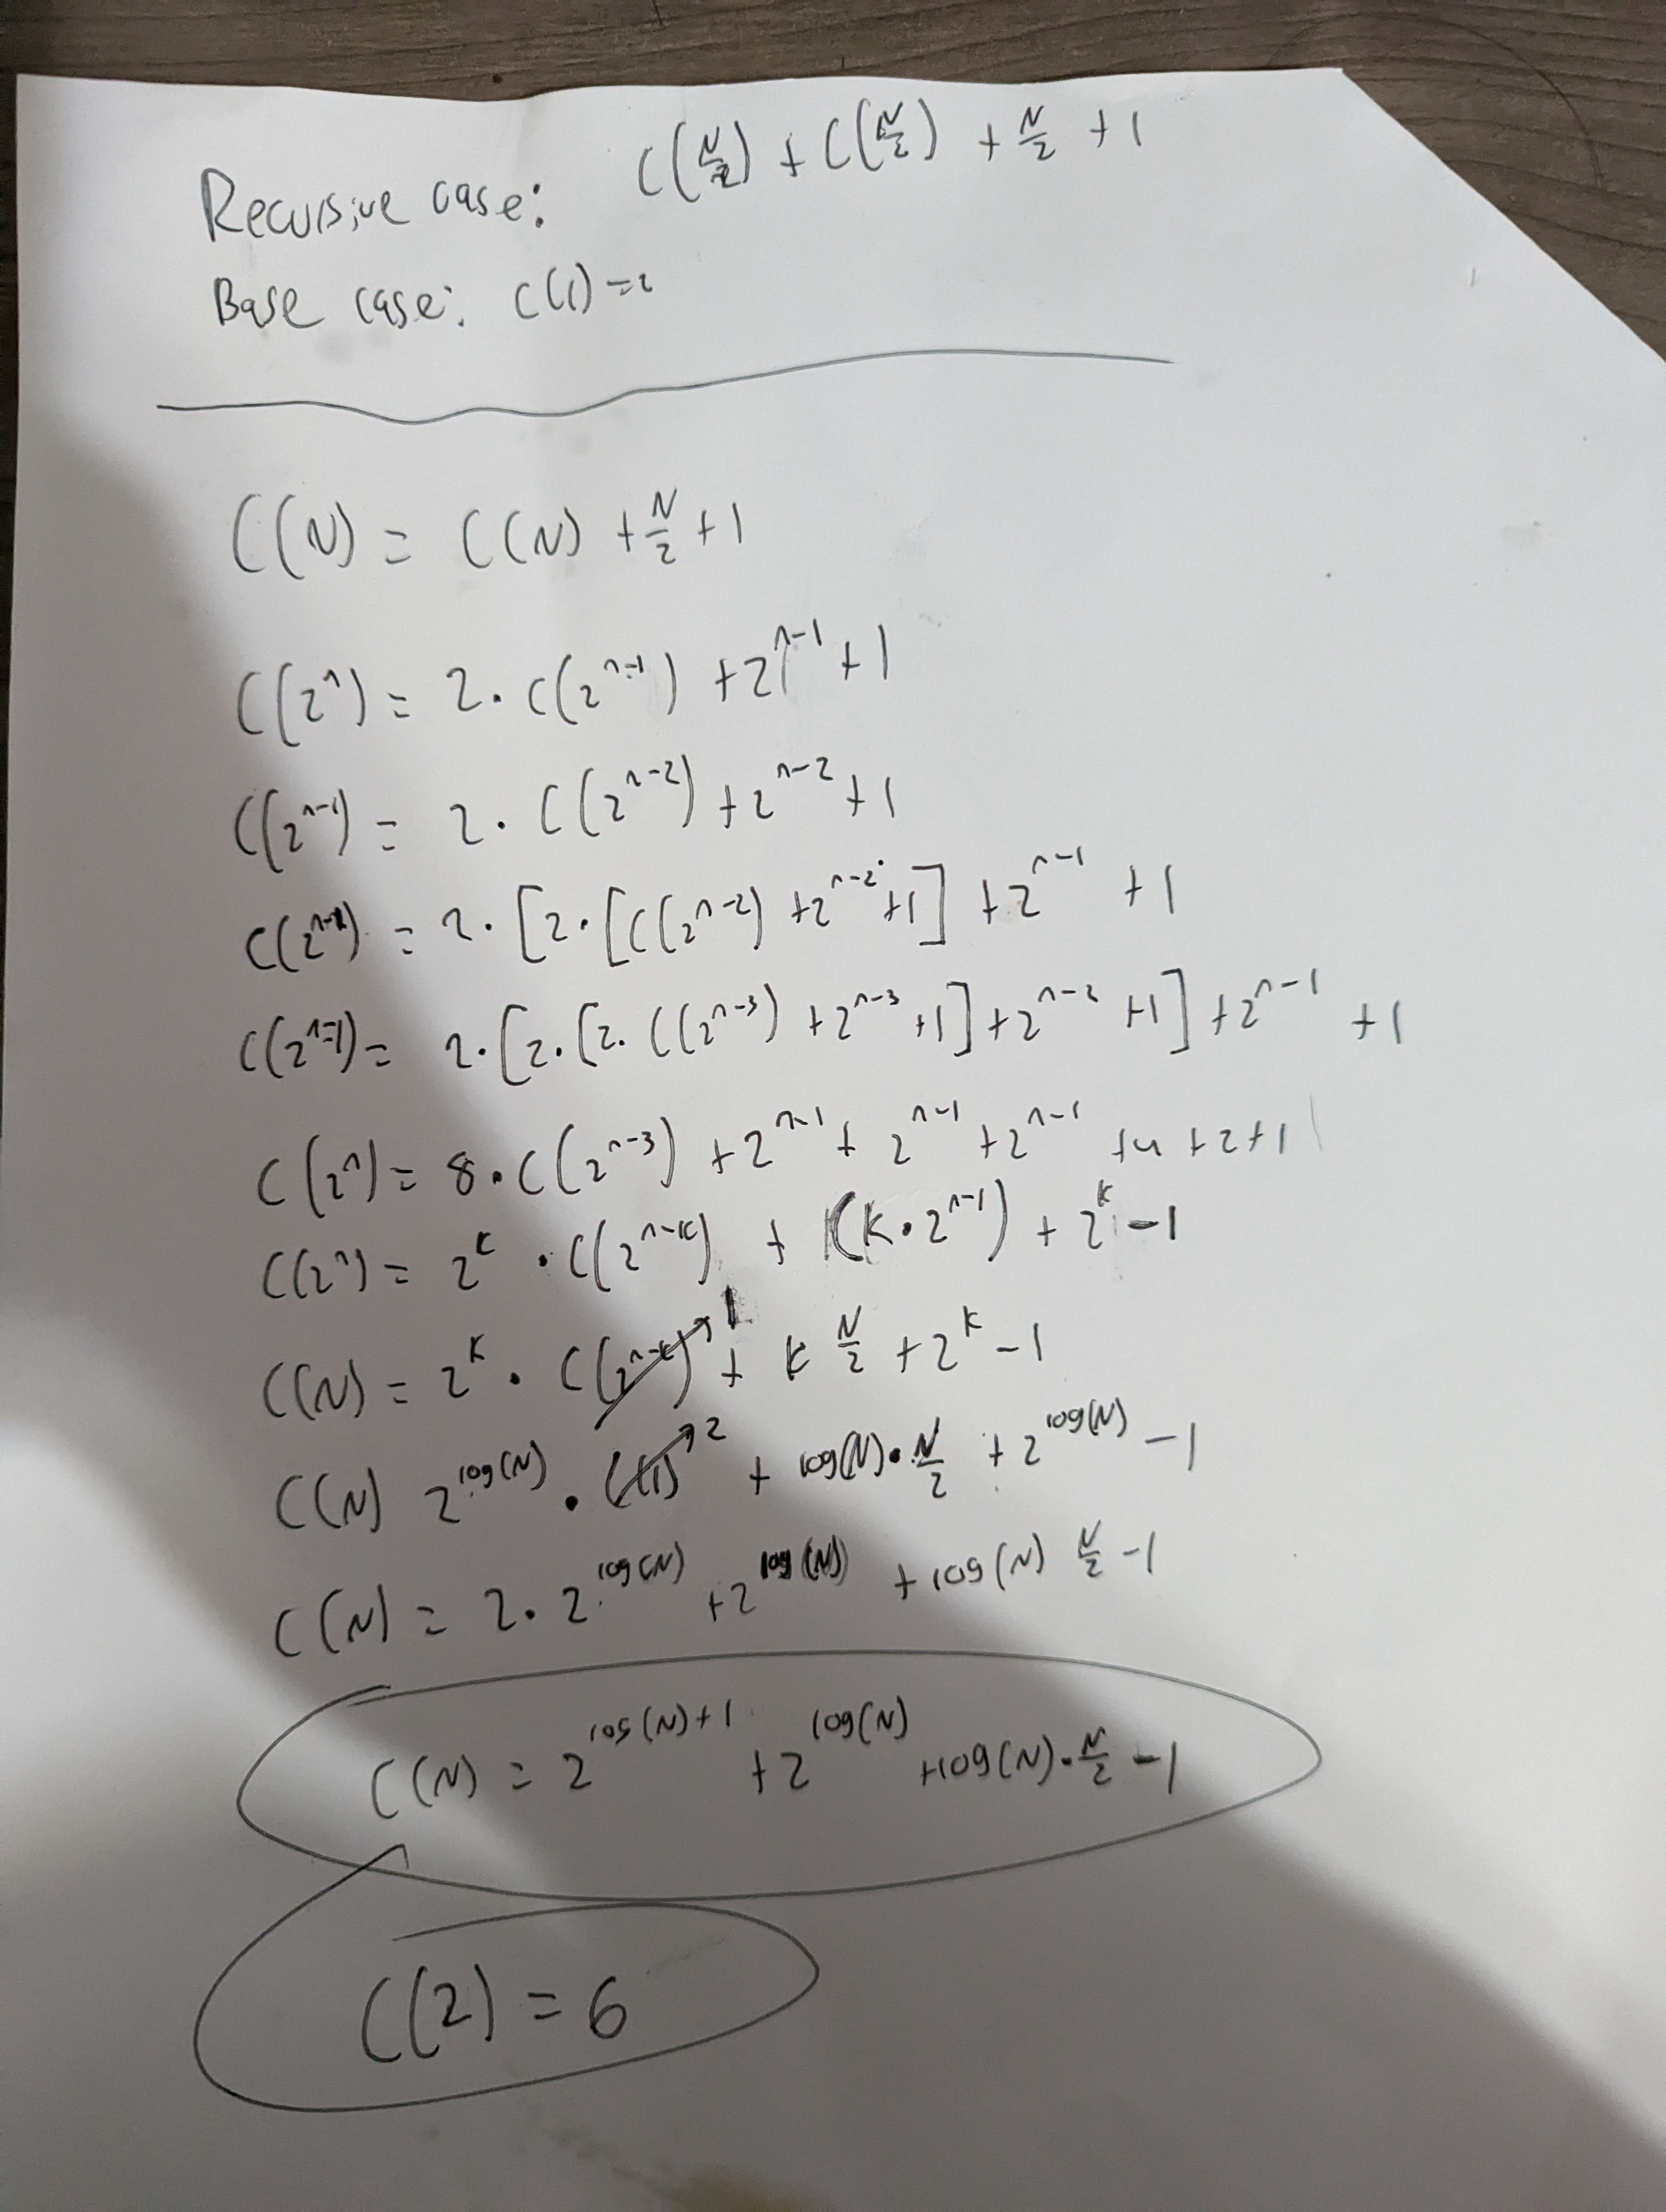 Recursive case: C(N/2) + C(N/2) + N/2 + 1
Base case: C(1) = 2
C(N) = C(N) + N/2 + 1
C(2^n) = 2 · C(2^(n-1)) + 2^(n-1) + 1
C(2^(n-1)) = 2 · C(2^(n-2)) + 2^(n-2) + 1
= 2 · [2 · [C(2^(n-2)) + 2^(n-2) + 1] + 2^(n-1) + 1
C(2^(n-1)) = 2 · [2 · [2 · C(2^(n-3)) + 2^(n-3) + 1] + 2^(n-2) + 1] + 2^(n-1) + 1
C(2^n) = 8 · C(2^(n-3)) + 2^(n-1) + 2^(n-1) + 2^(n-1) + 4 + 2 + 1
C(2^n) = 2^k · C(2^(n-k)) + (k · 2^(n-1)) + 2^k - 1
C(N) = 2^k · C(2^(n-k)) → 1 + k N/2 + 2^k - 1
C(N) 2^log(N) · C(1) → 2 + log(N) · N/2 + 2^log(N) - 1
C(N) = 2 · 2^log(N) + 2^log(N) + log(N) N/2 - 1
C(N) = 2^(log(N)+1) + 2^log(N) + log(N) · N/2 - 1
C(2) = 6